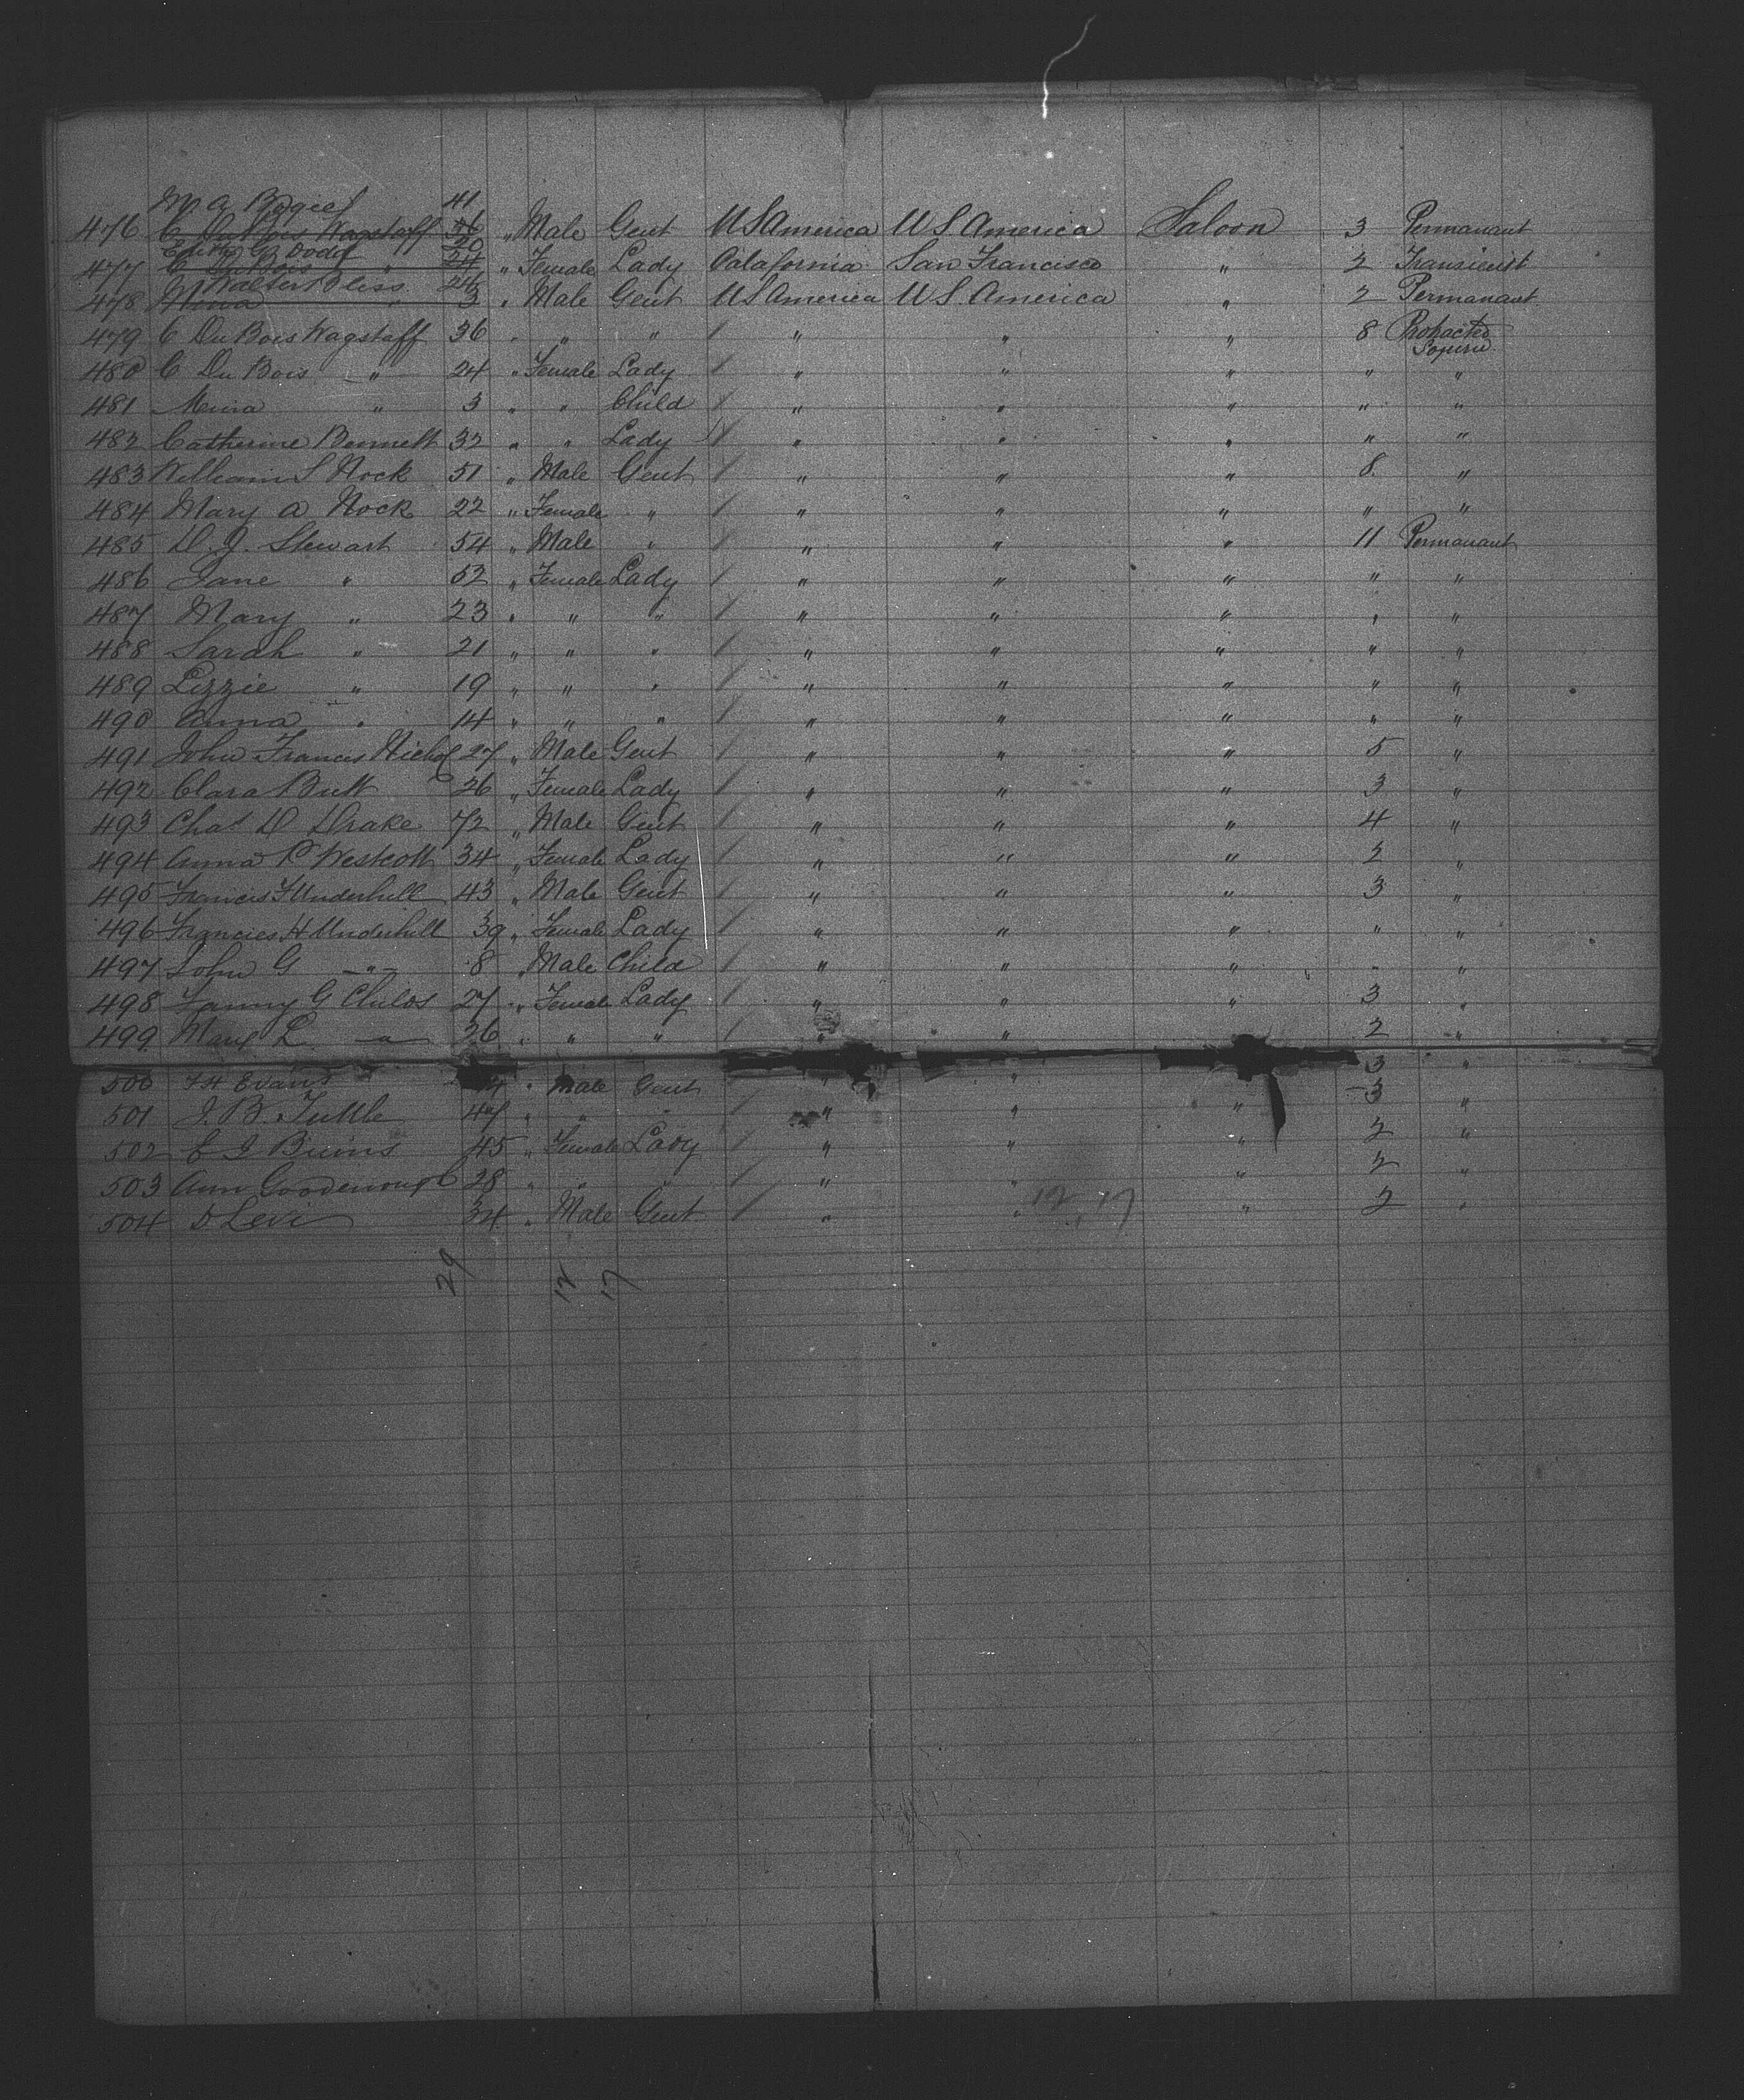 M A Bogiel 41
476 C DuBois Wagstaff 36 " Male Gent US America US America Saloon 3 Permanant
Edith B Dody 20
477 C DuBois " 24 " Female Lady Calafornia San Francisco " 2 Transient
Walter Bliss 24
478 Mona " 3 " Male Gent US America US America " 2 Permanant
479 C Du Bois Wagstaff 36 " " " / " " " 8 Protracted
Sojourn
480 C Du Bois " 24 " Female Lady / " " " " "
481 " 3 " " Child / " " " " "
482 Catherine Bennett 32 " " Lady / " " " " "
483 William S Nock 51 " Male Gent / " " " 8 "
484 Mary A Nock 22 " Female " / " " " " "
485 D. J. Stewart 54 " Male " / " " " 11 Permanant
486 Jane " 52 " Female Lady / " " " " "
487 Mary " 23 " " " / " " " " "
488 Sarah " 21 " " " / " " " " "
489 Lizzie " 19 " " " / " " " " "
490 Anna " 14 " " " / " " " " "
491 John Francis Nichol 27 " Male Gent / " " " 5 "
492 Clara Butt 26 " Female Lady / " " " 3 "
493 Chas D Drake 72 " Male Gent / " " " 4 "
494 Anna P Westcott 34 " Female Lady / " " " 2 "
495 Francis F Underhill 43 " Male Gent / " " " 3 "
496 Francies H Underhill 39 " Female Lady / " " " " "
497 John G " 8 " Male Child / " " " " "
498 Fanny G Childs 27 " Female Lady / " " " 3 "
499 Mary L " 26 " " " / " " 2 "
500 F H Evans " Male Gent " " 3 "
501 J. B. Tuttle 47 " " " / " " " 3 "
502 E J 45 " Female Lady / " " " 2 "
503 Ann Goodenough 28 " " " / " " " 2 "
504 D Levi 34 " Male Gent / " " " 2 "
12, 17
29 12 17